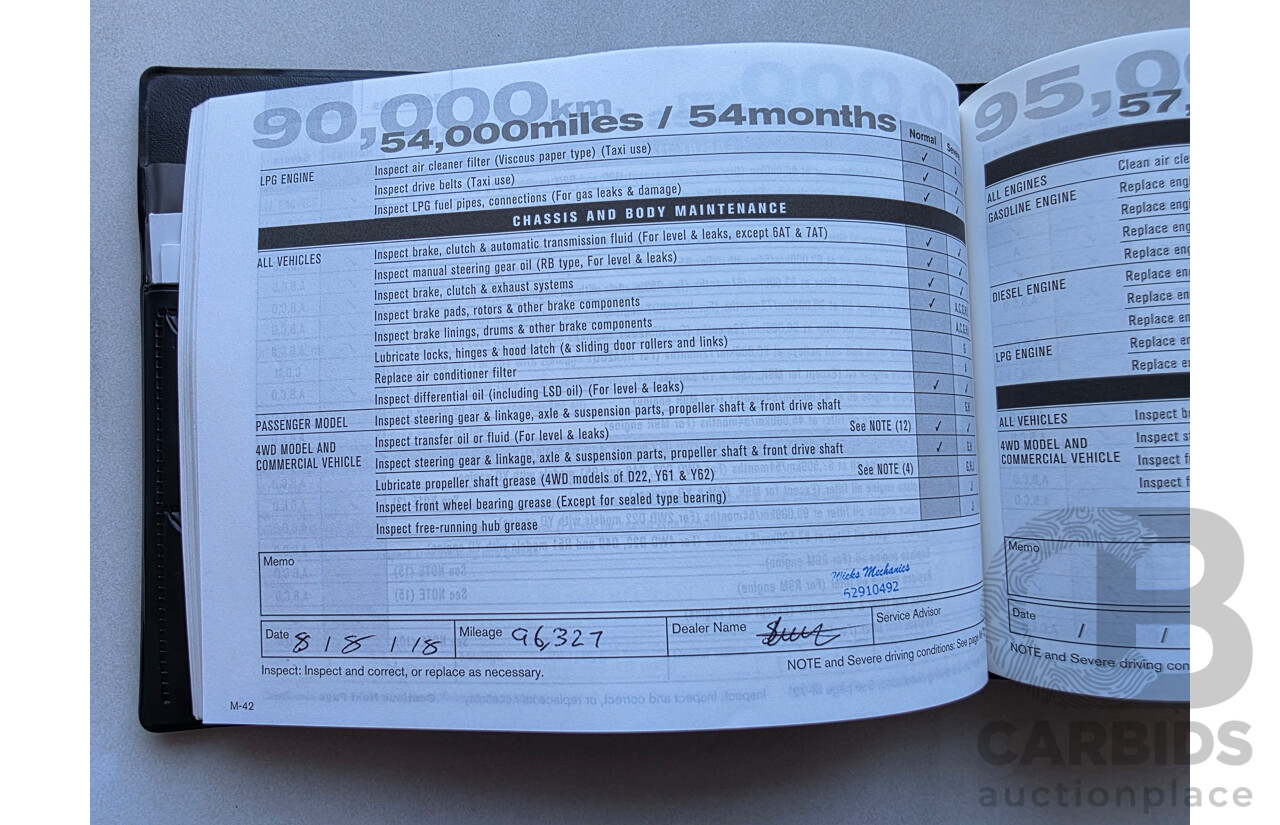 90,000km
54,000miles / 54months
Normal
LPG ENGINE
Inspect air cleaner filter (Viscous paper type) (Taxi use) ✓
Inspect drive belts (Taxi use) ✓
Inspect LPG fuel pipes, connections (For gas leaks & damage) ✓
CHASSIS AND BODY MAINTENANCE
ALL VEHICLES
Inspect brake, clutch & automatic transmission fluid (For level & leaks, except 6AT & 7AT) ✓
Inspect manual steering gear oil (RB type, For level & leaks) ✓
Inspect brake, clutch & exhaust systems ✓
Inspect brake pads, rotors & other brake components ✓
Inspect brake linings, drums & other brake components
Lubricate locks, hinges & hood latch (& sliding door rollers and links)
Replace air conditioner filter
Inspect differential oil (including LSD oil) (For level & leaks) ✓
PASSENGER MODEL
Inspect steering gear & linkage, axle & suspension parts, propeller shaft & front drive shaft
4WD MODEL AND
COMMERCIAL VEHICLE
Inspect transfer oil or fluid (For level & leaks) See NOTE (12) ✓
Inspect steering gear & linkage, axle & suspension parts, propeller shaft & front drive shaft ✓
Lubricate propeller shaft grease (4WD models of D22, Y61 & Y62) See NOTE (4)
Inspect front wheel bearing grease (Except for sealed type bearing)
Inspect free-running hub grease
Memo
Wicks Mechanics
62910492
Date 8 / 8 / 18
Mileage 96,327
Dealer Name
Service Advisor
Inspect: Inspect and correct, or replace as necessary.
NOTE and Severe driving conditions: See page
M-42
95,0
57,
ALL ENGINES
Clean air cle
GASOLINE ENGINE
Replace eng
Replace eng
Replace en
Replace en
DIESEL ENGINE
Replace en
Replace en
Replace en
LPG ENGINE
Replace e
Replace e
ALL VEHICLES
Inspect b
4WD MODEL AND
COMMERCIAL VEHICLE
Inspect s
Inspect f
Inspect f
Memo
Date / /
NOTE and Severe driving con
B
CARBIDS
auctionplace